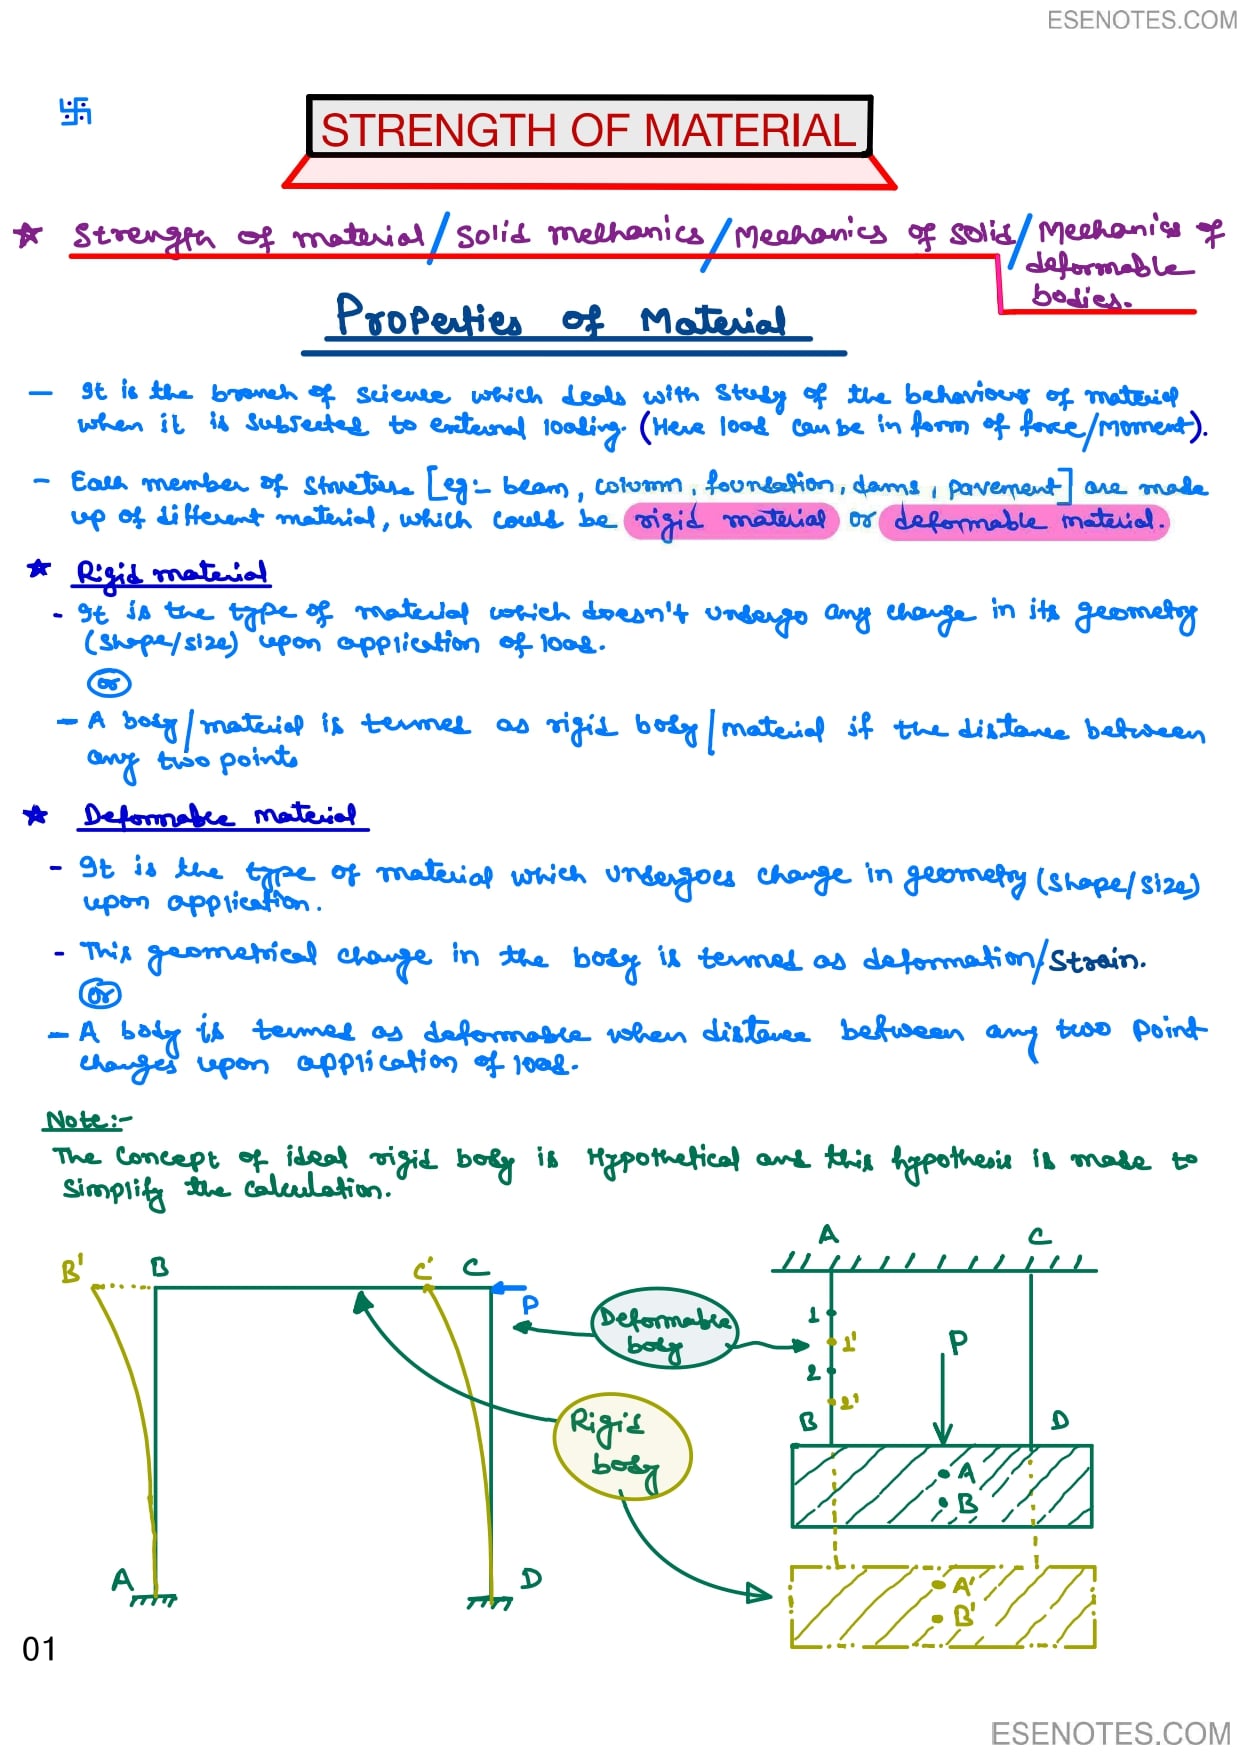 ESENOTES.COM
卐
STRENGTH OF MATERIAL
★ Strength of material/Solid mechanics/Mechanics of Solid/Mechanics of
deformable
bodies.
Properties of Material
— It is the branch of science which deals with Study of the behaviour of material
when it is subjected to external loading. (Here load can be in form of force/Moment).
- Each member of structure [eg:- beam, column, foundation, dams, pavement] are made
up of different material, which could be rigid material or deformable material.
★ Rigid material
- It is the type of material which doesn't undergo any change in its geometry
(shape/size) upon application of load.
or
- A body/material is termed as rigid body/material if the distance between
any two points
★ Deformable material
- It is the type of material which undergoes change in geometry (shape/size)
upon application.
- This geometrical change in the body is termed as deformation/Strain.
or
- A body is termed as deformable when distance between any two point
changes upon application of load.
Note:-
The concept of ideal rigid body is Hypothetical and this hypothesis is made to
simplify the calculation.
B' B C' C
P
A D
Deformable
body
Rigid
body
A C
1
1'
2
2'
P
B D
A
B
A'
B'
01
ESENOTES.COM